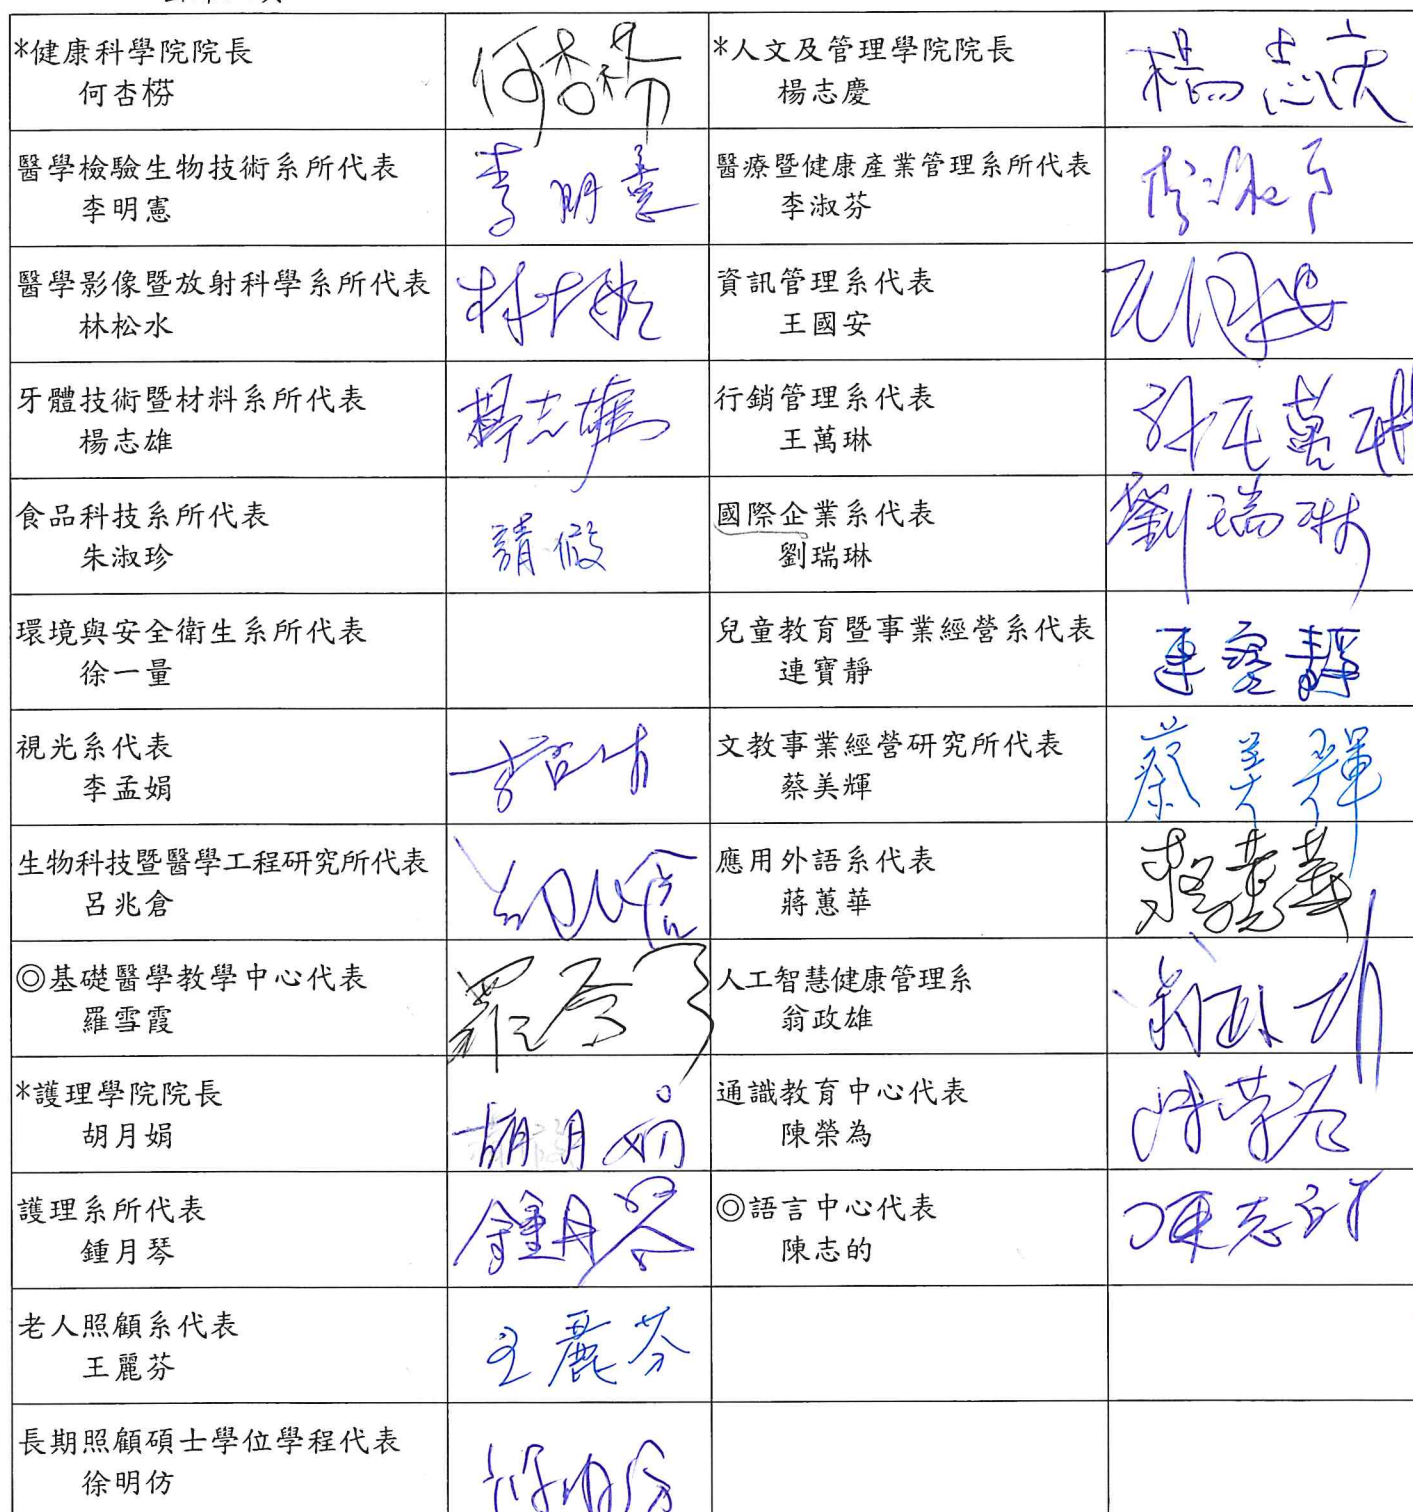 *健康科學院院長
何杏棻
何杏棻
*人文及管理學院院長
楊志慶
楊志慶
醫學檢驗生物技術系所代表
李明憲
李明憲
醫療暨健康產業管理系所代表
李淑芬
李淑芬
醫學影像暨放射科學系所代表
林松水
資訊管理系代表
王國安
王國安
牙體技術暨材料系所代表
楊志雄
楊志雄
行銷管理系代表
王萬琳
食品科技系所代表
朱淑珍
請假
國際企業系代表
劉瑞琳
劉瑞琳
環境與安全衛生系所代表
徐一量
兒童教育暨事業經營系代表
連寶靜
連寶靜
視光系代表
李孟娟
文教事業經營研究所代表
蔡美輝
蔡美輝
生物科技暨醫學工程研究所代表
呂兆倉
應用外語系代表
蔣蕙華
蔣蕙華
◎基礎醫學教學中心代表
羅雪霞
人工智慧健康管理系
翁政雄
*護理學院院長
胡月娟
胡月娟
通識教育中心代表
陳榮為
護理系所代表
鍾月琴
鍾月琴
◎語言中心代表
陳志的
陳志的
老人照顧系代表
王麗芬
王麗芬
長期照顧碩士學位學程代表
徐明仿